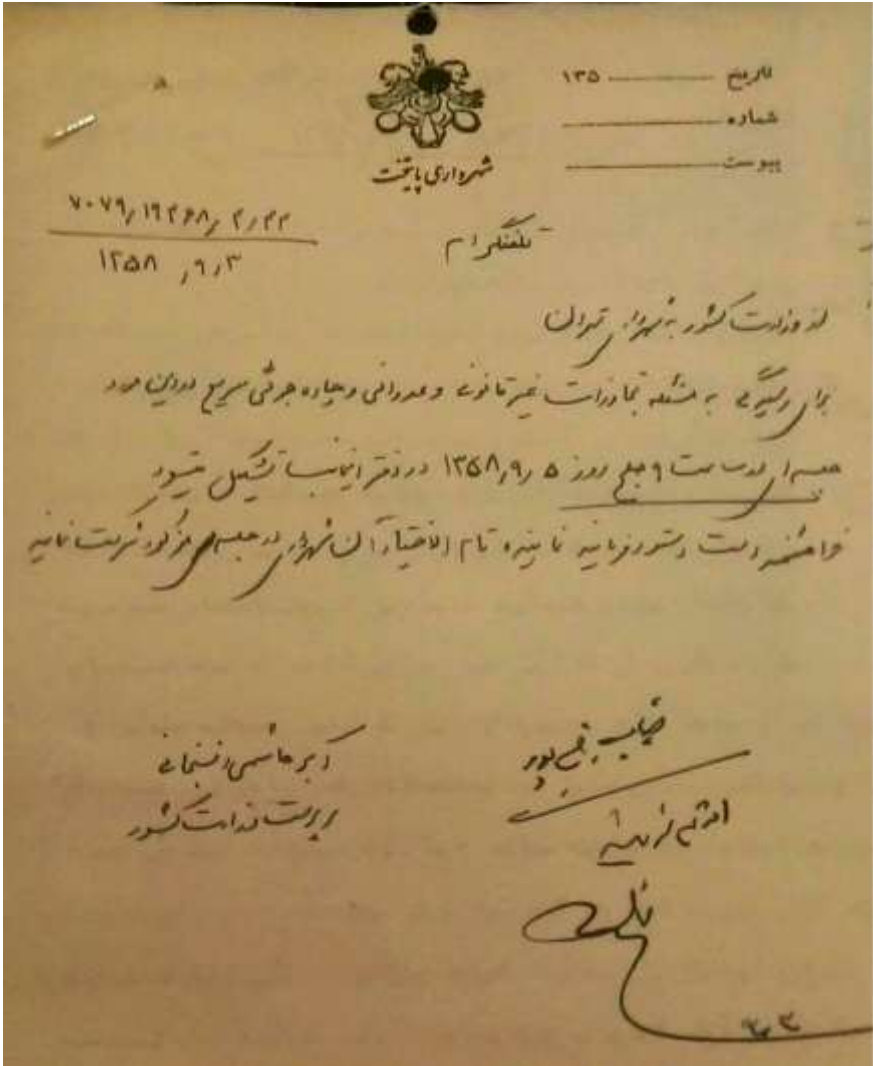 تاریخ ــــــــ ۱۳۵
شماره ــــــــ
پیوست ــــــــ
شهرداری پایتخت
۱۳۵۸٫۹٫۳
تلفنگرام
از وزارت کشور به شهرداری تهران
برای رسیدگی به مسئله تجاوزات غیر قانونی و عدوانی و چاره جوئی سریع در این مورد
جلسه‌ای در ساعت ۹ صبح روز ۵٫۹٫۱۳۵۸ در دفتر اینجانب تشکیل میشود
خواهشمند است دستور فرمایید نماینده تام الاختیار آن شهرداری در جلسه مذکور شرکت نمایند
جناب
اکبر هاشمی رفسنجانی
سرپرست وزارت کشور